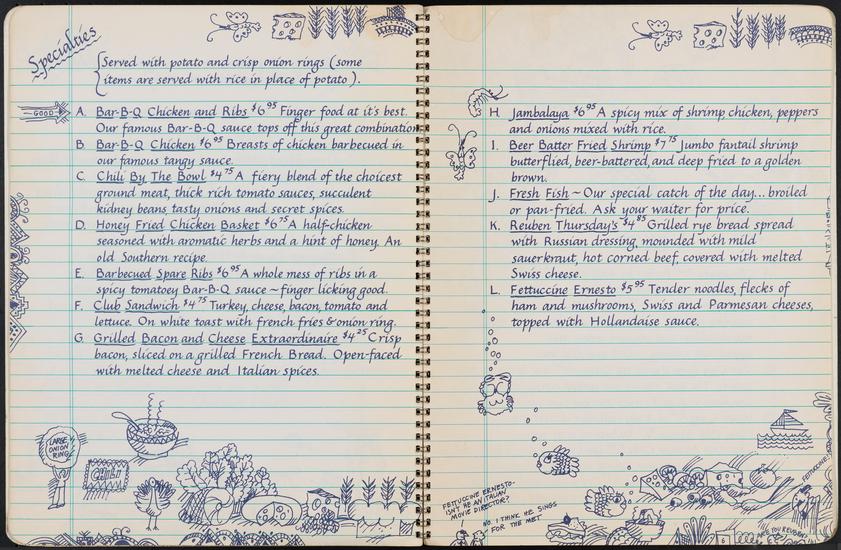 Specialties
Served with potato and crisp onion rings (some
items are served with rice in place of potato).
GOOD
A. Bar-B-Q Chicken and Ribs $6.95 Finger food at it's best.
Our famous Bar-B-Q sauce tops off this great combination.
B. Bar-B-Q Chicken $6.95 Breasts of chicken barbecued in
our famous tangy sauce.
C. Chili By The Bowl $4.75 A fiery blend of the choicest
ground meat, thick rich tomato sauces, succulent
kidney beans, tasty onions and secret spices.
D. Honey Fried Chicken Basket $6.75 A half-chicken
seasoned with aromatic herbs and a hint of honey. An
old Southern recipe.
E. Barbecued Spare Ribs $6.95 A whole mess of ribs in a
spicy tomatoey Bar-B-Q sauce ~ finger licking good.
F. Club Sandwich $4.75 Turkey, cheese, bacon, tomato and
lettuce. On white toast with french fries & onion ring.
G. Grilled Bacon and Cheese Extraordinaire $4.25 Crisp
bacon, sliced on a grilled French Bread. Open-faced
with melted cheese and Italian spices.
LARGE
ONION
RING
CHILI
H. Jambalaya $6.95 A spicy mix of shrimp, chicken, peppers
and onions mixed with rice.
I. Beer Batter Fried Shrimp $7.75 Jumbo fantail shrimp
butterflied, beer-battered, and deep fried to a golden
brown.
J. Fresh Fish ~ Our special catch of the day... broiled
or pan-fried. Ask your waiter for price.
K. Reuben Thursday's $4.85 Grilled rye bread spread
with Russian dressing, mounded with mild
sauerkraut, hot corned beef, covered with melted
Swiss cheese.
L. Fettuccine Ernesto $5.95 Tender noodles, flecks of
ham and mushrooms, Swiss and Parmesan cheeses,
topped with Hollandaise sauce.
FETTUCCINE ERNESTO-
ISN'T HE AN ITALIAN
MOVIE DIRECTOR?
NO. I THINK HE SINGS
FOR THE MET
FETTUCCINE!